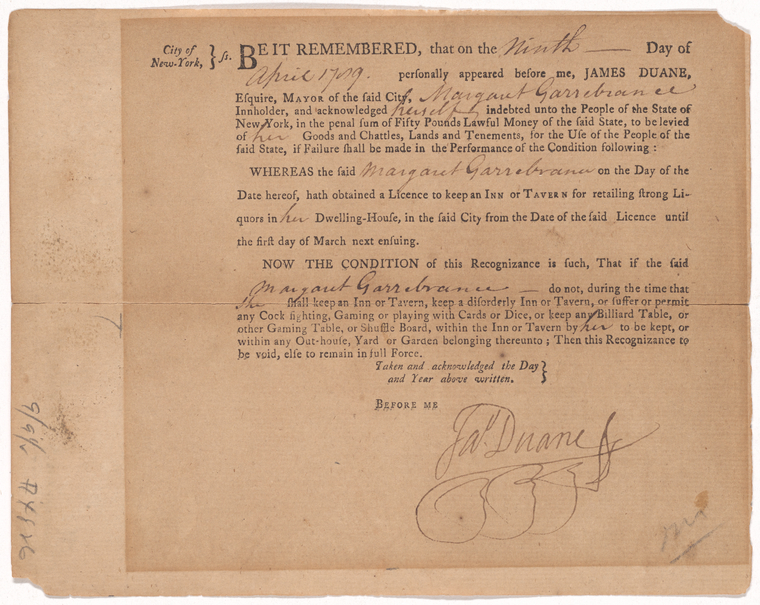 City of
New-York, } ſs. BE IT REMEMBERED, that on the Ninth — Day of
April 1789. perſonally appeared before me, JAMES DUANE,
Eſquire, MAYOR of the ſaid City, Margaret Garrebrance
Innholder, and acknowledged herself indebted unto the People of the State of
New York, in the penal ſum of Fifty Pounds Lawful Money of the ſaid State, to be levied
of her Goods and Chattles, Lands and Tenements, for the Uſe of the People of the
ſaid State, if Failure ſhall be made in the Performance of the Condition following :
WHEREAS the ſaid Margaret Garrebrance on the Day of the
Date hereof, hath obtained a Licence to keep an INN or TAVERN for retailing ſtrong Li-
quors in her Dwelling-Houſe, in the ſaid City from the Date of the ſaid Licence until
the firſt day of March next enſuing.
NOW THE CONDITION of this Recognizance is ſuch, That if the ſaid
Margaret Garrebrance — do not, during the time that
She ſhall keep an Inn or Tavern, keep a diſorderly Inn or Tavern, or ſuffer or permit
any Cock fighting, Gaming or playing with Cards or Dice, or keep any Billiard Table, or
other Gaming Table, or Shuffle Board, within the Inn or Tavern by her to be kept, or
within any Out-houſe, Yard or Garden belonging thereunto ; Then this Recognizance to
be void, elſe to remain in full Force.
Taken and acknowledged the Day
and Year above written. }
BEFORE ME
Jas. Duane